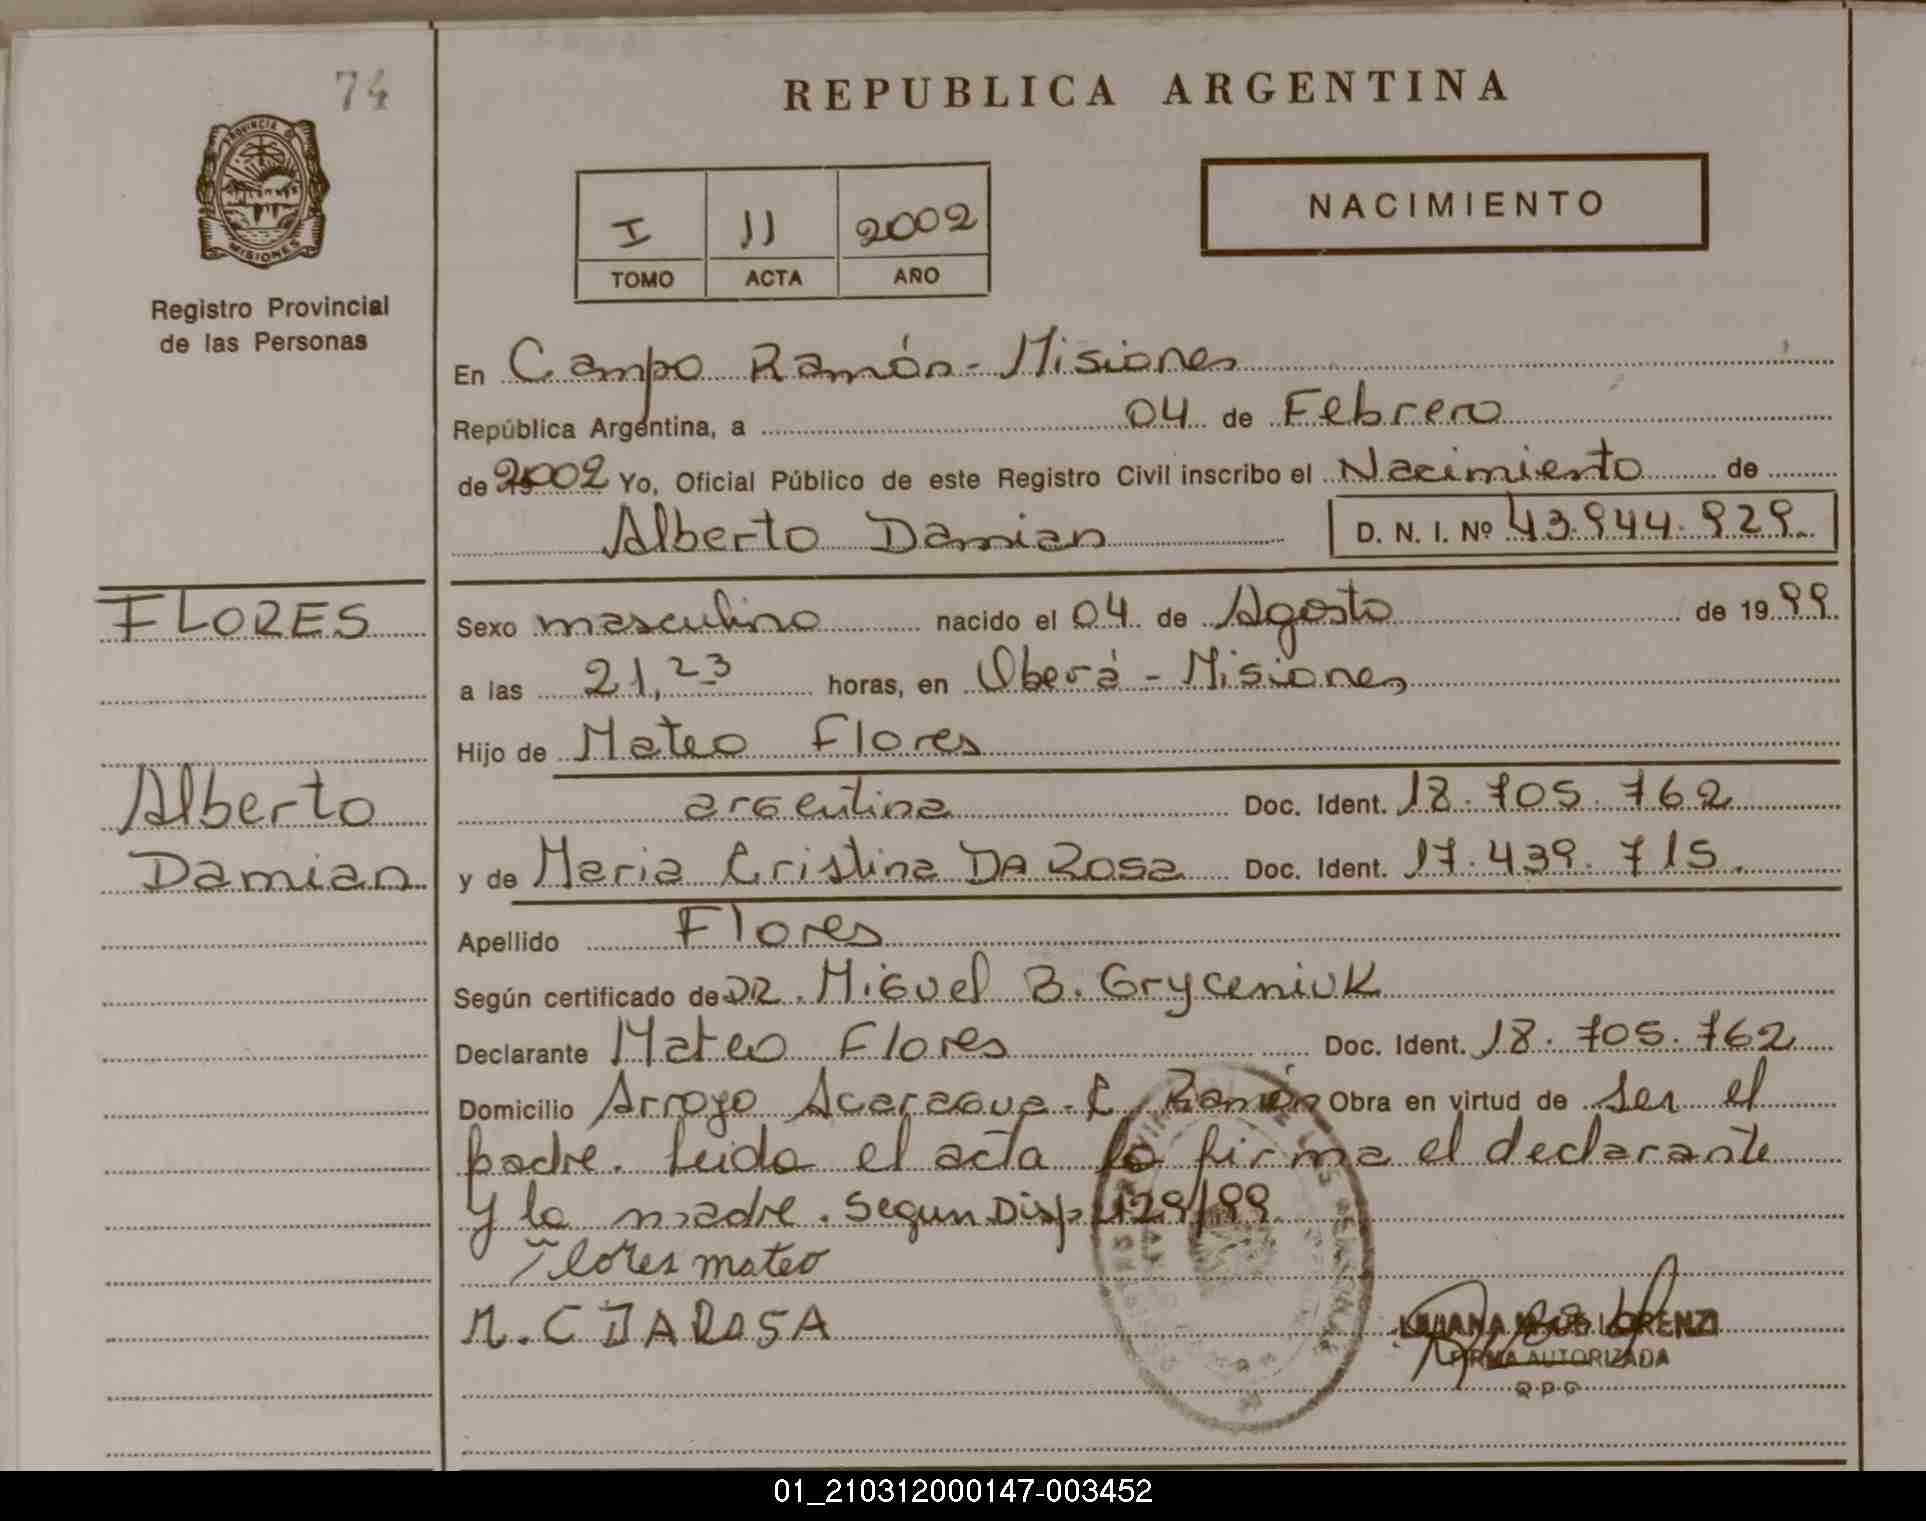 74
REPUBLICA ARGENTINA
PROVINCIA DE
MISIONES
Registro Provincial
de las Personas
I 11 2002
TOMO ACTA AÑO
NACIMIENTO
En Campo Ramón - Misiones
República Argentina, a 04 de Febrero
de 2002 Yo, Oficial Público de este Registro Civil inscribo el Nacimiento de
Alberto Damian D. N. I. Nº 43.944.929.
FLORES
Alberto
Damian
Sexo masculino nacido el 04 de Agosto de 19 99
a las 21,23 horas, en Oberá - Misiones
Hijo de Mateo Flores
argentina Doc. Ident. 18.705.762
y de Maria Cristina DA ROSA Doc. Ident. 17.439.715.
Apellido Flores
Según certificado de DR. Miguel B. Gryceniuk
Declarante Mateo Flores Doc. Ident. 18.705.762
Domicilio Arroyo Acaragua - C. Ramón Obra en virtud de ser el
padre. Leida el acta la firma el declarante
y la madre. Segun Disp 129/99
Flores mateo
M. C DAROSA
LORENZI
FIRMA AUTORIZADA
01_210312000147-003452